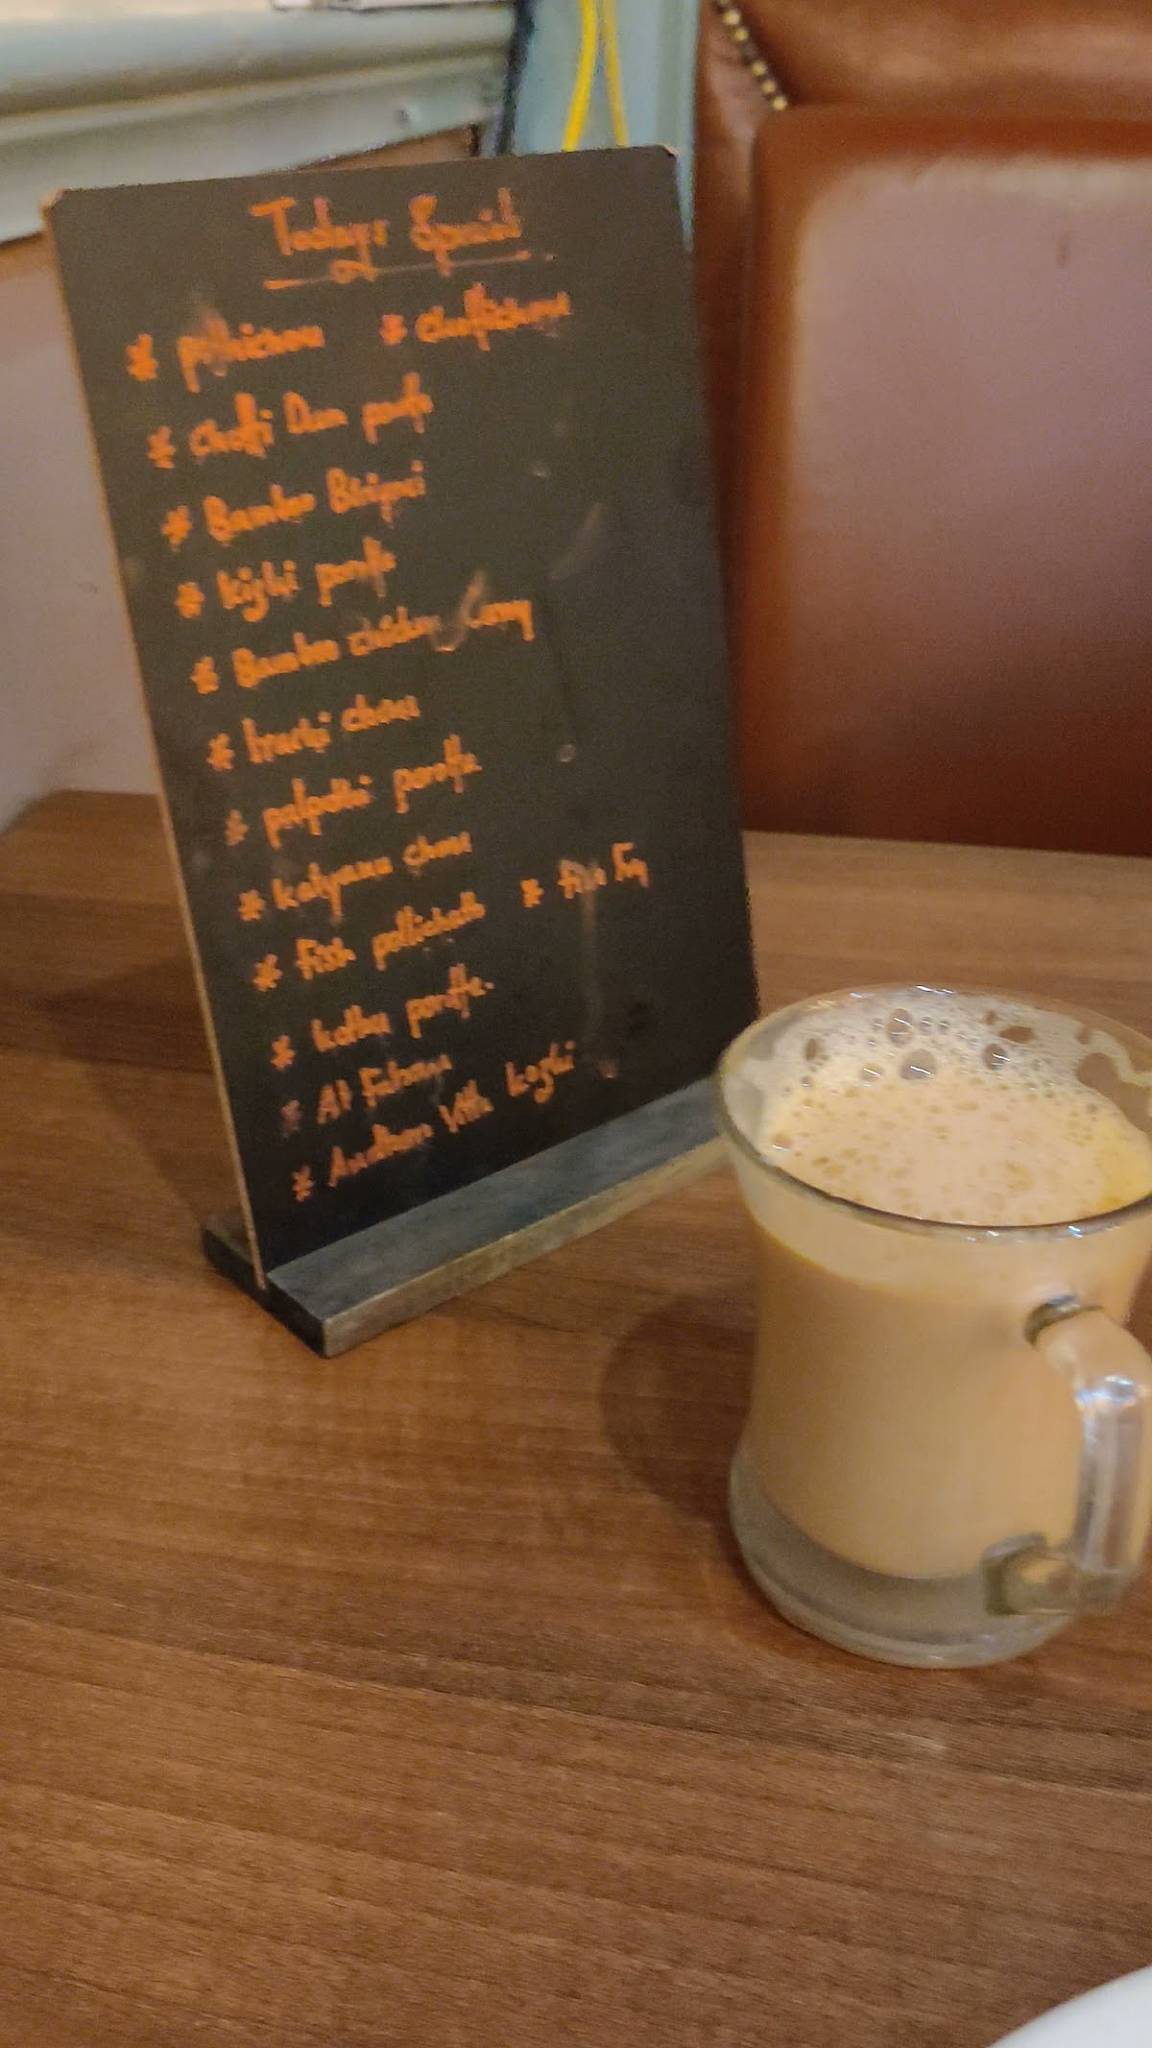 Todays Special
* pothichoru * chattichoru
* Chatti Dum porotta
* Bamboo Biriyani
* kizhi porotta
* Bamboo chicken Curry
* Irachi choru
* palpotti porotta
* kalyana choru
* Fish pollichath * Fish Fry
* kothu porotta.
* Al Faham
* With kozhi